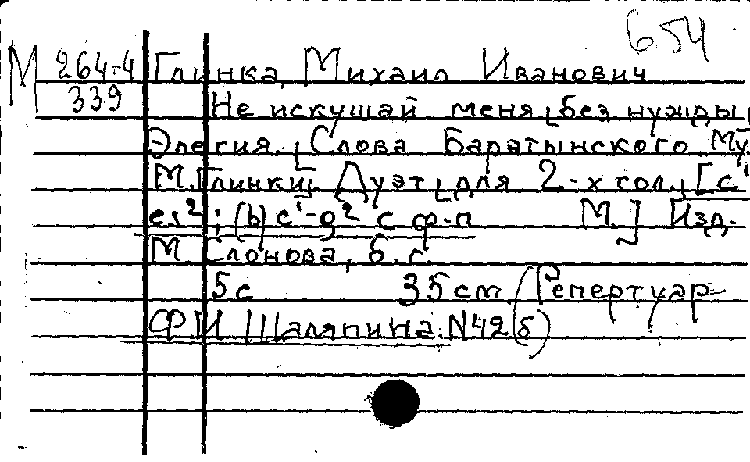 654
М 264-4 Глинка, Михаил Иванович
339 Не искушай меня без нужды
Элегия. Слова Баратынского. Му
М. Глинки. Дуэт для 2-х гол. [c¹
es²; (b)c¹-g² с ф-п М.] Изд.
М. Слонова, б. г.
5 с 35 см. (Репертуар
Ф И Шаляпина. N 42 б)